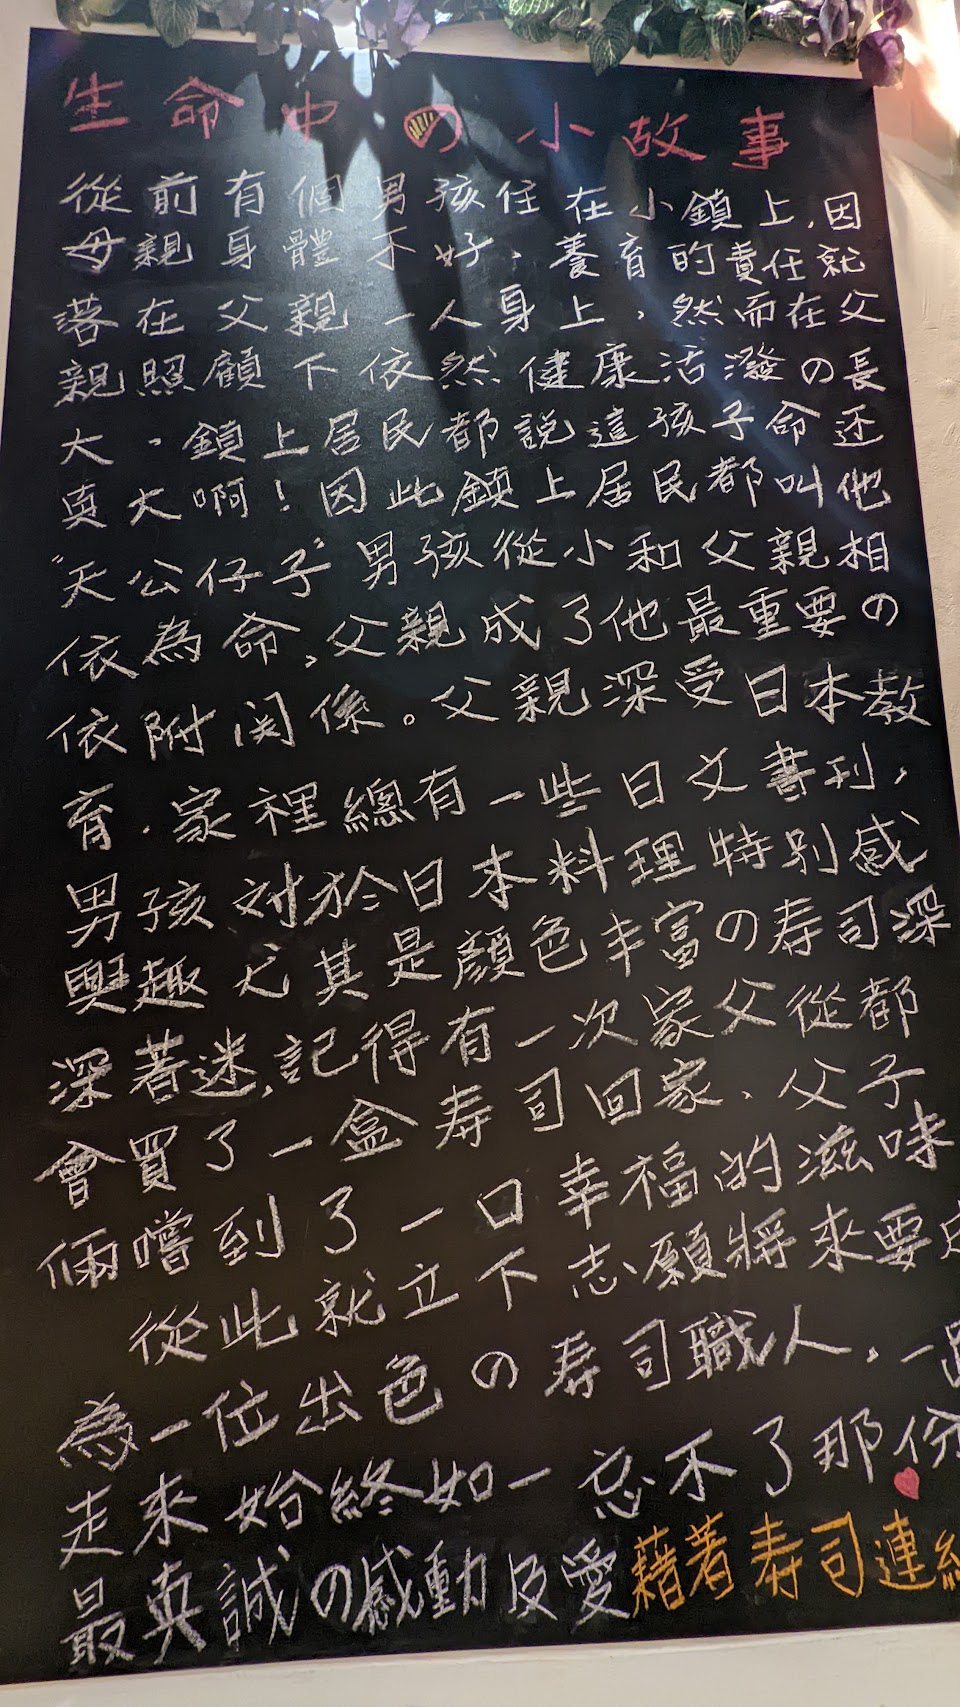 生命中の小故事
從前有個男孩住在小鎮上,因
母親身體不好、養育的責任就
落在父親一人身上,然而在父
親照顧下依然健康活潑の長
大、鎮上居民都說這孩子命还
真大啊!因此鎮上居民都叫他
"天公仔子"男孩從小和父親相
依為命,父親成了他最重要の
依附関係。父親深受日本教
育.家裡總有一些日文書刊,
男孩対於日本料理特別感
興趣尤其是顏色丰富の寿司深
深著迷,記得有一次家父從都
會買了一盒寿司回家、父子
倆嚐到了一口幸福的滋味
從此就立下志願將來要
為一位出色の寿司職人,一
走來始終如一忘不了那份
最真誠の感動及愛藉著寿司連